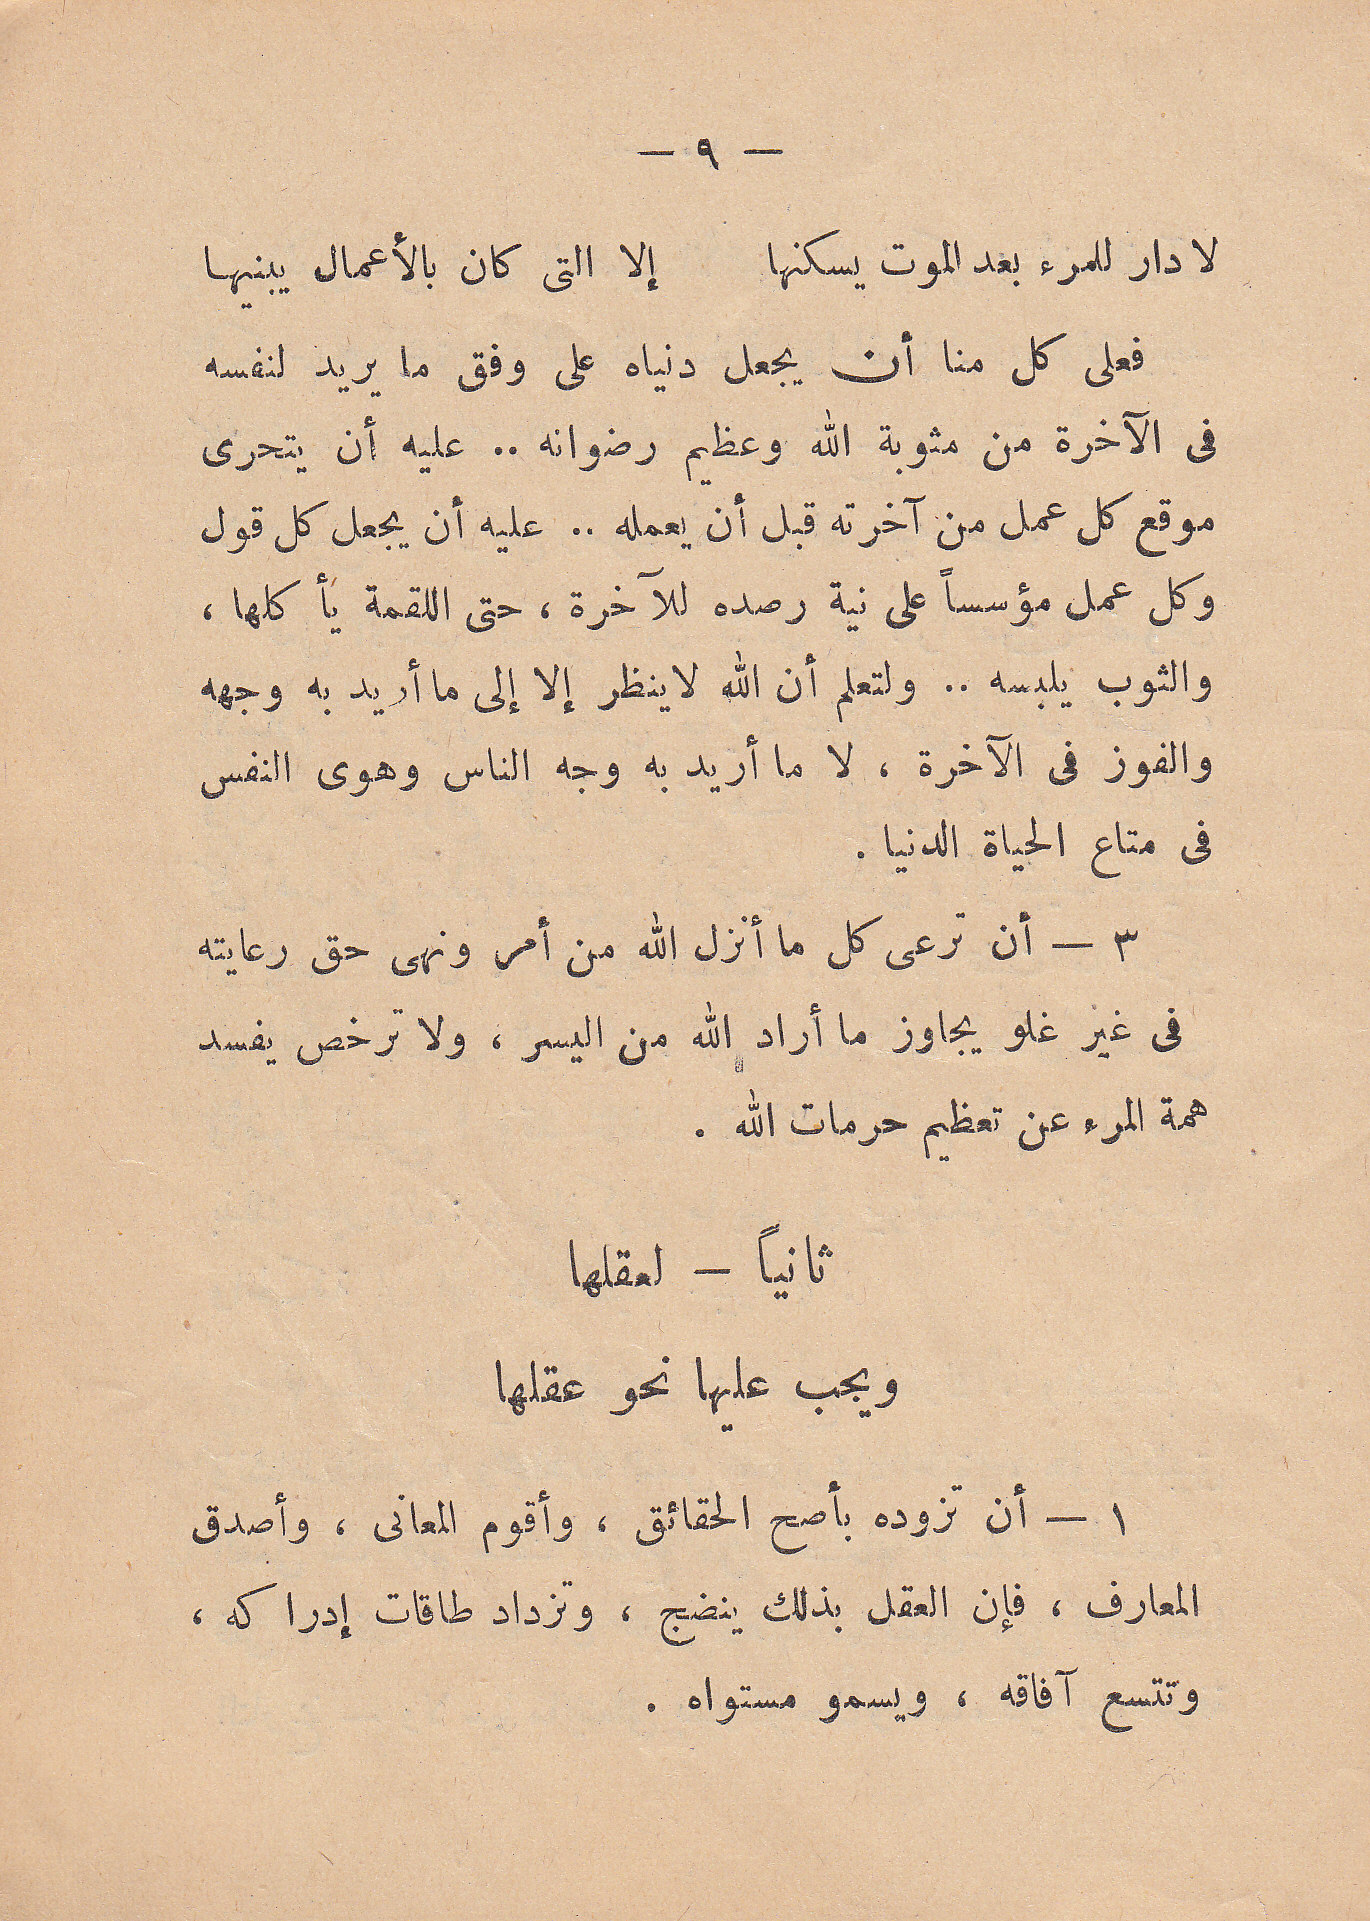 — ٩ —
لا دار للمرء بعد الموت يسكنها إلا التى كان بالأعمال يبنيها
فعلى كل منا أن يجعل دنياه على وفق ما يريد لنفسه
فى الآخرة من مثوبة الله وعظيم رضوانه .. عليه أن يتحرى
موقع كل عمل من آخرته قبل أن يعمله .. عليه أن يجعل كل قول
وكل عمل مؤسساً على نية رصده للآخرة ، حتى اللقمة يأكلها ،
والثوب يلبسه .. ولتعلم أن الله لاينظر إلا إلى ما أريد به وجهه
والفوز فى الآخرة ، لا ما أريد به وجه الناس وهوى النفس
فى متاع الحياة الدنيا .
٣ — أن ترعى كل ما أنزل الله من أمر ونهى حق رعايته
فى غير غلو يجاوز ما أراد الله من اليسر ، ولا ترخص يفسد
همة المرء عن تعظيم حرمات الله .
ثانياً — لعقلها
ويجب عليها نحو عقلها
١ — أن تزوده بأصح الحقائق ، وأقوم المعانى ، وأصدق
المعارف ، فإن العقل بذلك ينضج ، وتزداد طاقات إدراكه ،
وتتسع آفاقه ، ويسمو مستواه .